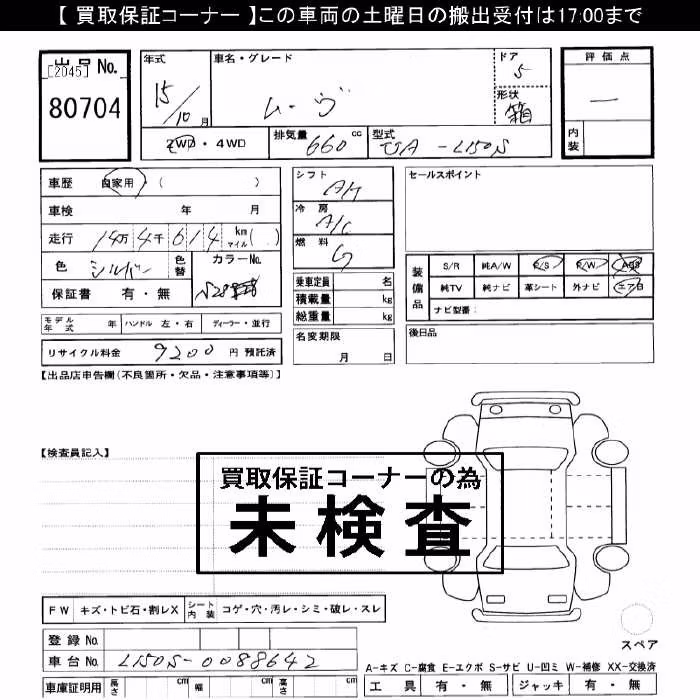 【 買取保証コーナー 】この車両の土曜日の搬出受付は17:00まで
出品 No.
[2045]
80704
年式 15/10月
車名・グレード ムーヴ
ドア 5
形状 箱
評価点 —
内装
2WD・4WD 排気量 660 cc 型式 UA-L150S
車歴 自家用・( )
車検 年 月
走行 14万 4千 6 1 4 km マイル ( )
色 シルバー 色替 カラーNo. S28
保証書 有・無
シフト AT
冷房 A/C
燃料 G
乗車定員 名
積載量 kg
総重量 kg
名変期限 月 日
セールスポイント
装備品 S/R 純A/W P/S P/W ABS
純TV 純ナビ 革シート 外ナビ エアB
ナビ型番:
後日品
モデル年式 年 ハンドル 左・右 ディーラー・並行
リサイクル料金 9200 円 預託済
【出品店申告欄(不良箇所・欠品・注意事項等)】
【検査員記入】
買取保証コーナーの為
未検査
FW キズ・トビ石・割レX シート内装 コゲ・穴・汚レ・シミ・破レ・スレ
登録 No.
車台 No. L150S-0088642
車庫証明用 長さ cm 幅 cm 高さ cm
スペア
A-キズ C-腐食 E-エクボ S-サビ U-凹ミ W-補修 XX-交換済
工具 有・無 ジャッキ 有・無